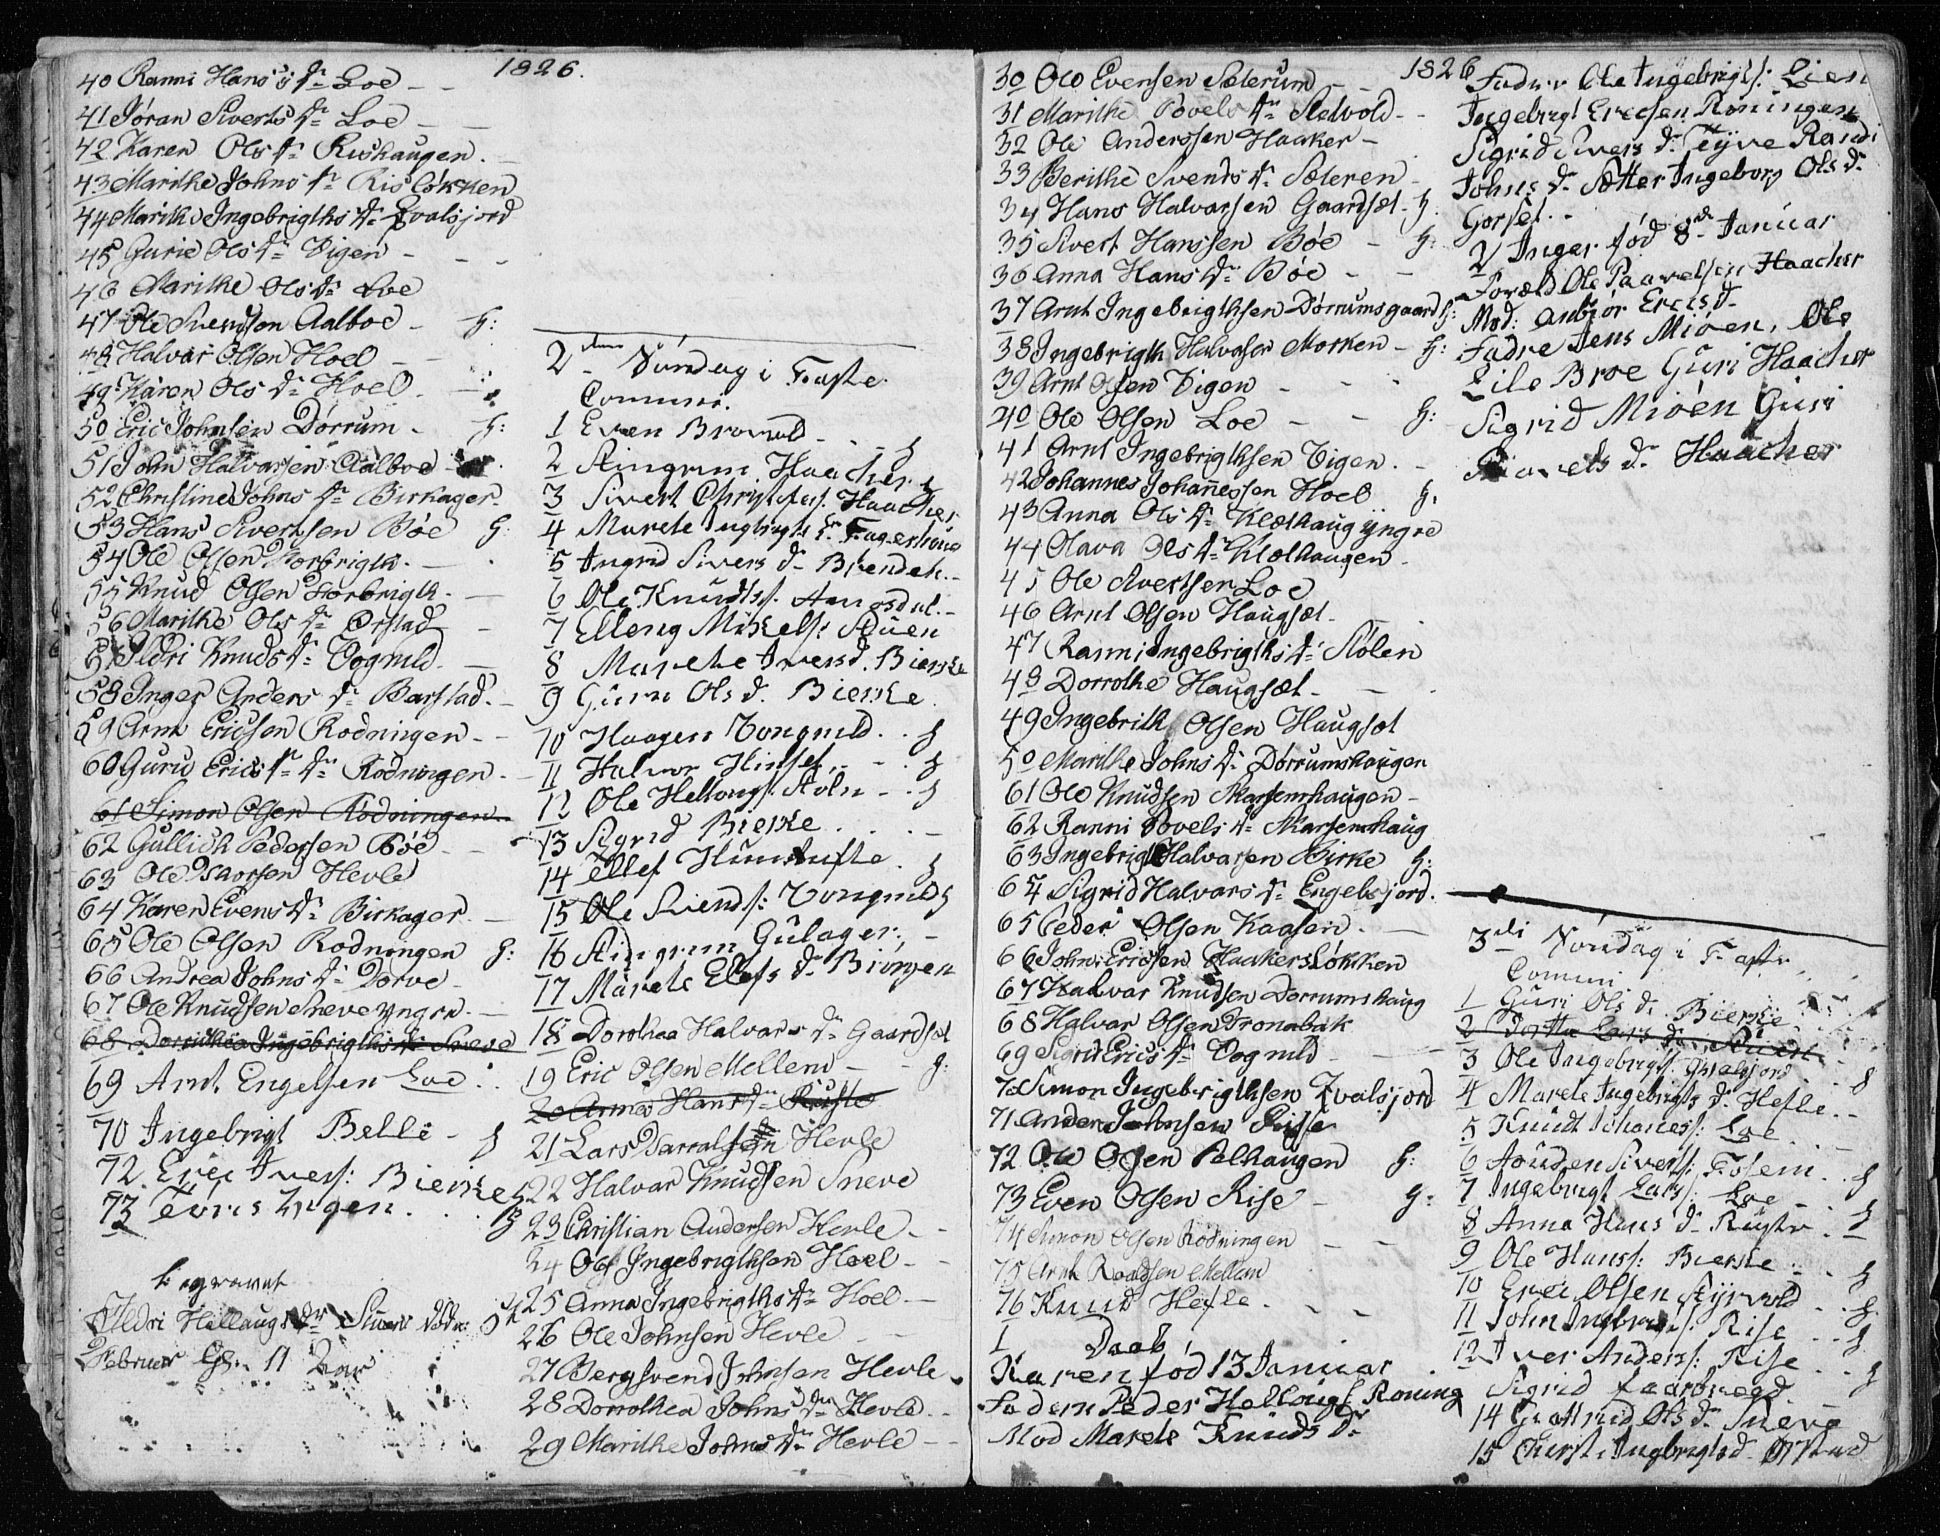 1826.
40 Ranni Hans's Dr Loe
41 Jøran Siverts Dr Loe
42 Karen Ols Dr Rishaugen.
43 Marithe Johns Dr Risløkken
44 Marithe Ingebrigths Dr Qvalsjord
45 Gurie Ols Dr Vigen
46 Marithe Ols Dr Loe
47 Ole Svendsen Aalboe - H:
48 Halvar Olsen Hoel
49 Karen Ols Dr Hoel
50 Eric Johnsen Dørrum - H:
51 John Halvarsen Aalboe
52 Christine Johns Dr Birkager
53 Hans Sivertsen Bøe H:
54 Ole Olsen Horbrigth.
55 Knud Olsen Horbrigth.
56 Marithe Ols Dr Ørstad
57 Ildri Knuds Dr Vognild
58 Inger Anders Dr Barstad.
59 Arnt Ericsen Rodningen
60 Guru Erics Dr Rodningen
61 Simon Olsen Rødningen
62 Gullich Pedersen Bøe
63 Ole Thorsen Hevle
64 Karen Evens Dr Birkager.
65 Ole Olsen Rodningen H:
66 Andrea Johns Dr Dørve
67 Ole Knudsen Sneve yngre.
68 Dorothea Ingebrigths Dr Sneve
69 Arnt Engelsen Loe
70 Ingebrigt Belle - H
72. Eric Ivers: Bierke H
73 Tøris Vigen. H
begravet
Ildri Hellaugs Dr Stuen døde
Februar 11 Aar
2den Søndag i Faste
Commu.
1 Even Brovold H
2 Stingrim Haacher H
3 Sivert Christofers. Haacher
4 Marete Ingbrigts Dr Fagerhaug
5 Ingrid Sivers D. Brendeh.
6 Ole Knudts: Amosdal.
7 Elleng Mikels: Stuen
8 Marete Ivers d. Bierke
9 Guru Ols d. Bierke
10 Haagen Vongnild. H
11 Halvor Hinsef H
12 Ole Hellougs. Støln H
13 Sigrid Bierke
14 Ellef Humtufte. H
15 Ole Svends: Vongnild H
16 Stingrim Gulager.
17 Marete Elefs D. Biørgen
18 Dorothea Halvars Dr Gaardset
19 Eric Olsen Mellem - H:
20 Anna Hans Dr Ruste
21 Lars Harralsen Hevle
22 Halvar Knudsen Sneve
23 Christian Andersen Hevle
24 Ole Ingebrigthsen Hoel
25 Anna Ingebrigths Dr Hoel
26 Ole Johnsen Hevle
27 Bergsvend Johnsen Hevle
28 Dorrothea Johns Dr Hevle
29 Marithe Johns Dr Hevle
1826
30 Ole Evensen Sæterum
31 Marithe Povels Dr Stetvold
32 Ole Anderssen Haaker
33 Berithe Svends Dr Sæteren
34 Hans Halvarsen Gaardset H:
35 Sivert Hanssen Bøe H:
36 Anna Hans Dr Bøe
37 Arnt Ingebrigthsen Dørrumsgaard H:
38 Ingebrigth Halvarsen Morken H:
39 Arnt Olsen Vigen
40 Ole Olsen Loe H:
41 Arnt Ingebrigthsen Vigen.
42 Johannes Johannessen Hoel H.
43 Anna Ols Dr Klæthaug yngre
44 Olava Ols Dr Klethaugen
45 Ole Sivertsen Loe
46 Arnt Olsen Haugset
47 Ranni Ingebrigths Dr Stølen
48 Dorrothe Haugsæt
49 Ingebrith Olsen Haugset
50 Marithe Johns Dr Dørrumshaugen
61 Ole Knudsen Skarsemshaugen
62 Ranni Povels Dr Skarsemshaug
63 Ingebrigt Halvarsen Birke H:
64 Sigrid Halvars Dr Engelsjord.
65 Peder Olsen Kaasen.
66 John Ericsen Haakersløkken
67 Halvar Knudsen Dørrumshaug
68 Halvar Olsen Tronabak
69 Sigrid Erics Dr Vognild
70 Simon Ingebrigthsen Qvalsjord
71 Anders Johnsen Rise
72 Ole Olsen Pelhaugen H:
73 Even Olsen Rise H:
74 Simon Olsen Rødningen
75 Arnt Roaldsen Mellem
76 Knud Hefle
1 Daab
Karen fød 13 Januar
Fadern Peder Hellougs: Roning
Mod Marete Knuds Dr
Fadre Ole Ingebrigts: Lien
Ingebrigt Ericsen Roningen
Sigrid Sivers d. Tyve Randi
Johns d. Sætter Ingeborg Ols d.
Gorset.
2 Inger fød 8de Januar
Foræld Ole Paavelsen Haacher
Mod: Anbjør Erics d.
Fadre Jens Mioen, Ole
Eile Broe Guri Haacher
Sigrid Mioen Guri
Paavels d. Haacher
3di Søndag i Faste
Commu
1 Guri Ols d. Bierke
2 Dortte Lars d. Stuen
3 Ole Ingebrigts: Qvalsjord H
4 Marete Ingebrigts d. Hefle
5 Knudt Johaness: Loe
6 Aouden Sivers: Fosem H
7 Ingebrigt Lars: Loe
8 Anna Hans d. Ruste H
9 Ole Hans: Bierke H
10 Eric Olsen Styrvold H
11 John Ingbrigts: Rise H
12 Iver Anders: Rise H
Sigrid faarbregd
14 Guttrid Ols d. Sneve
15 Kierst: Ingbrigts d. Ørstad